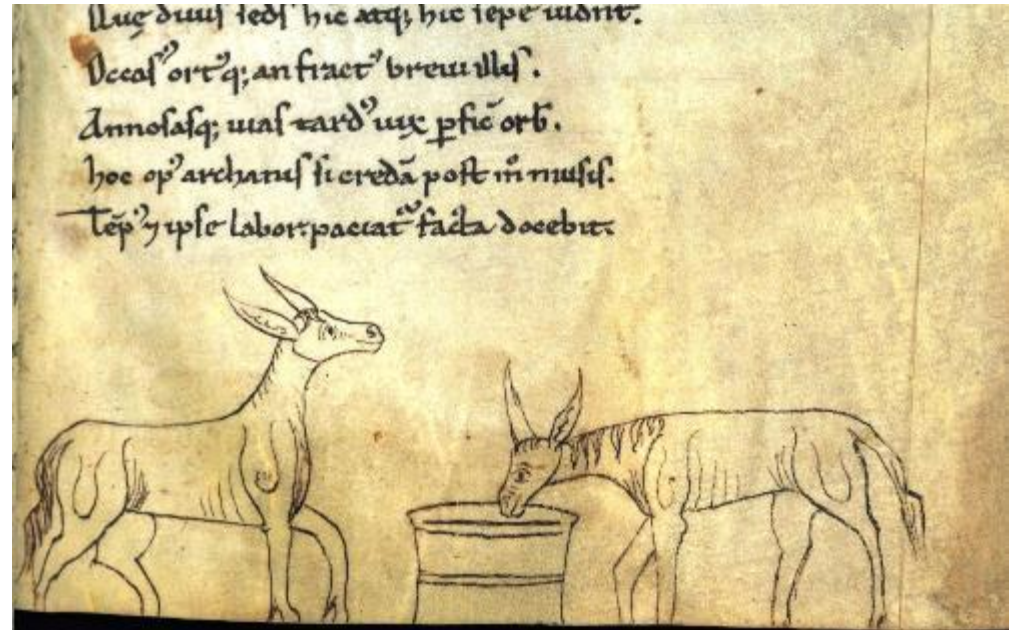 hic atq; hic sepe
Occasꝰ ortꝰq; an fractꝰ breui illis.
Annosasq; uias tardꝰ uix ꝑficĩ orb̄.
hoc opꝰ archanis si credã post m̊ musis.
Tẽpꝰ ⁊ ipse labor; paciatᷣ facta docebit.